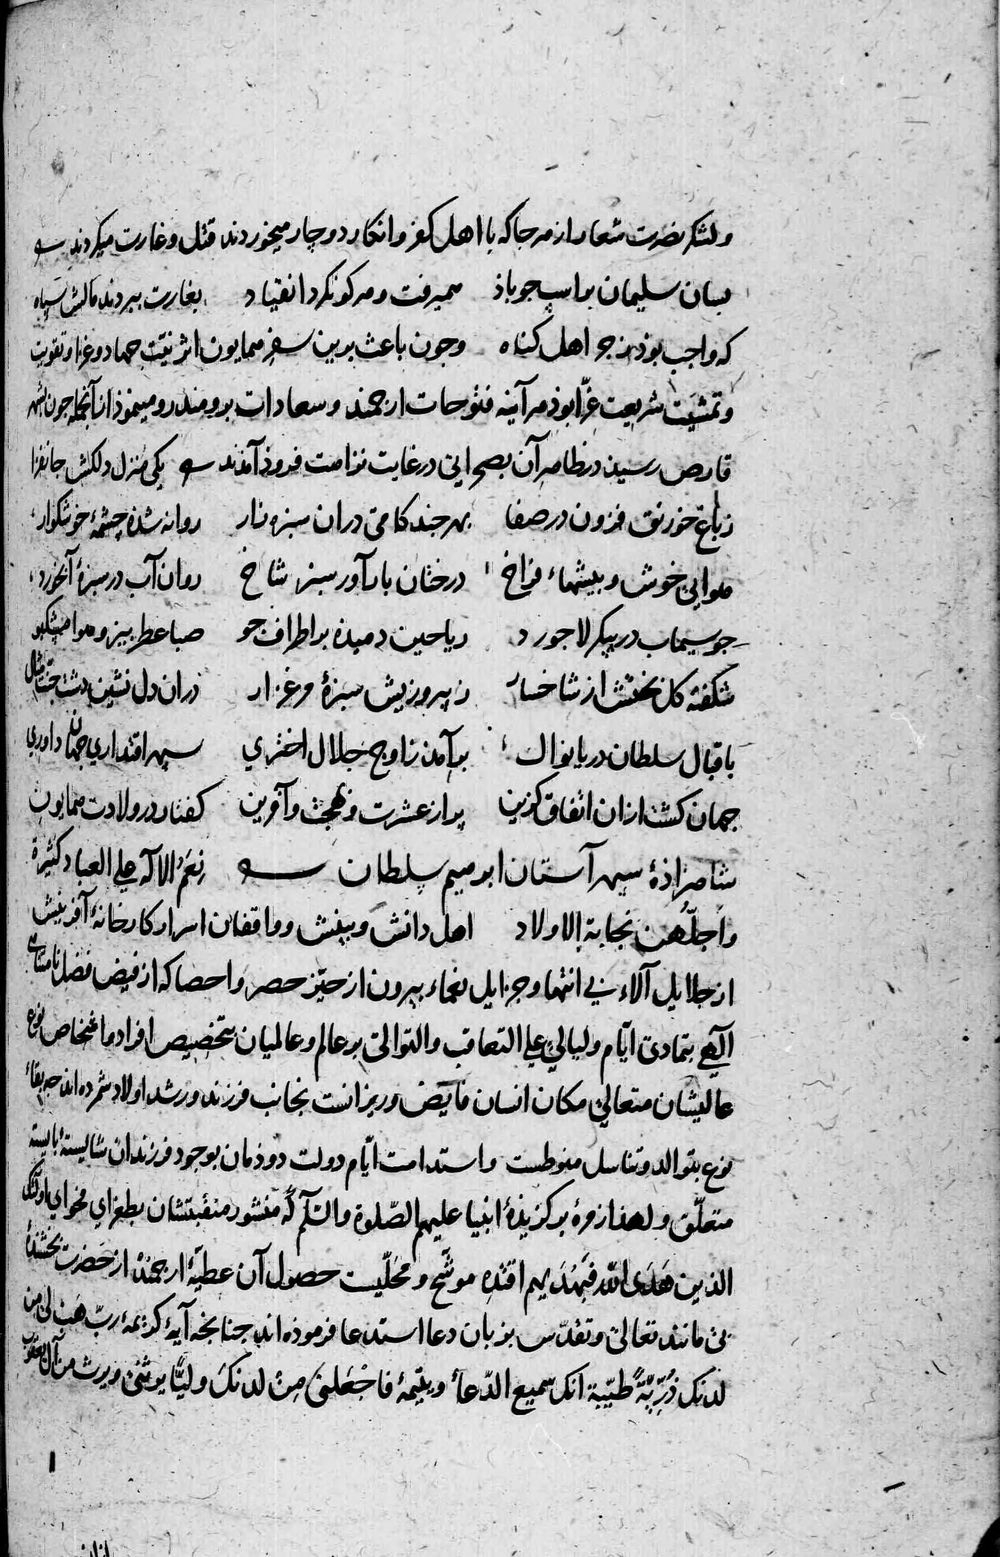 ولشکر نصرت شعار از هر جا که با اهل کفر و انکار دوچار میخوردند قتل و غارت میکردند
بسان سلیمان بر اسپ جو باذ همیرفت و هر کو نکرد انقیاد بغارت ببردند مالش سپاه
که واجب بوذ زجر اهل کناه وجون باعث برین سفر همایون اثر نیّت جهاد و غزا و تقویت
وتمشیت شریعت غرّا بوذ هر آینه فتوحات ارجمند و سعادات برومند رو مینموذ از آنجمله جون بشهر
قارص رسید در ظاهر آن بصحرایی در غایت نزاهت فروذ آمدند یکی منزل دلکش جانفزا
زباغ خورنق فزون در صفا بهر جند کامی دران سبزه زار روانه شذه چشمهٔ خوشکوار
هوایی خوش و بیشهاء فراخ درختان بارآور سبز شاخ روان آب در سبزهٔ آبخورد
جو سیماب در پیکر لاجورد ریاحین دمیده بر اطراف جو صبا عطر بیز و هوا مشکبو
شکفته کل بختش از شاخسار ز پیروزیش سبزهٔ مرغزار دران دل نشین دشت جنّت مثال
باقبال سلطان دریا نوال برآمد زاوج جلال اختری سپهر اقتداری جهان داوری
جهان کشت ازان اتفاق کزین پر از عشرت و بهجت و آفرین کفتار در ولادت همایون
شاهزاذهٔ سپهر آستان ابرهیم سلطان نِعَمُ الاله علی العباد کثیرة
واجلّهن نجابة الاولاد اهل دانش و بینش و واقفان اسرار کارخانهٔ آفرینش
از جلایل آلاء بی انتها و جزایل نعماء بیرون از حیّز حصر و احصا که از فیض فضل نامتناهی
الهی بتمادی ایّام و لیالی علی التعاقب والتوالی بر عالم و عالمیان بتخصیص افراد و اشخاص نوع
عالیشان متعالی مکان انسان فایض و ریزانست نجابت فرزند و رشد اولاد شمرده اند جه بقاء
نوع بتوالد و تناسل منوطست و استدامت ایّام دولت دوذمان بوجود فرزندان شایستهٔ بایسته
متعلّق ولهذا زمرهٔ برکزیذهٔ انبیا علیهم الصّلوة والسّلم که منشور منقبتشان بطغرای فحوای اولئک
الذین هَدَی الله فبهُدَیهم اقتده موشّح و محلّیست حصول آن عطیّهٔ ارجمند از حضرت بخشندهٔ
بی مانند تعالی و تقدّس بزبان دعا استدعا فرموذه اند جنانجه آیهٔ کریمهٔ ربّ هَب لی من
لدنک ذُرّیّةً طیّبة انک سمیع الدّعاء و یتیمهٔ فاجْعَلنی من لدنک ولیّا یرثنی و یرث من آل یعقوب